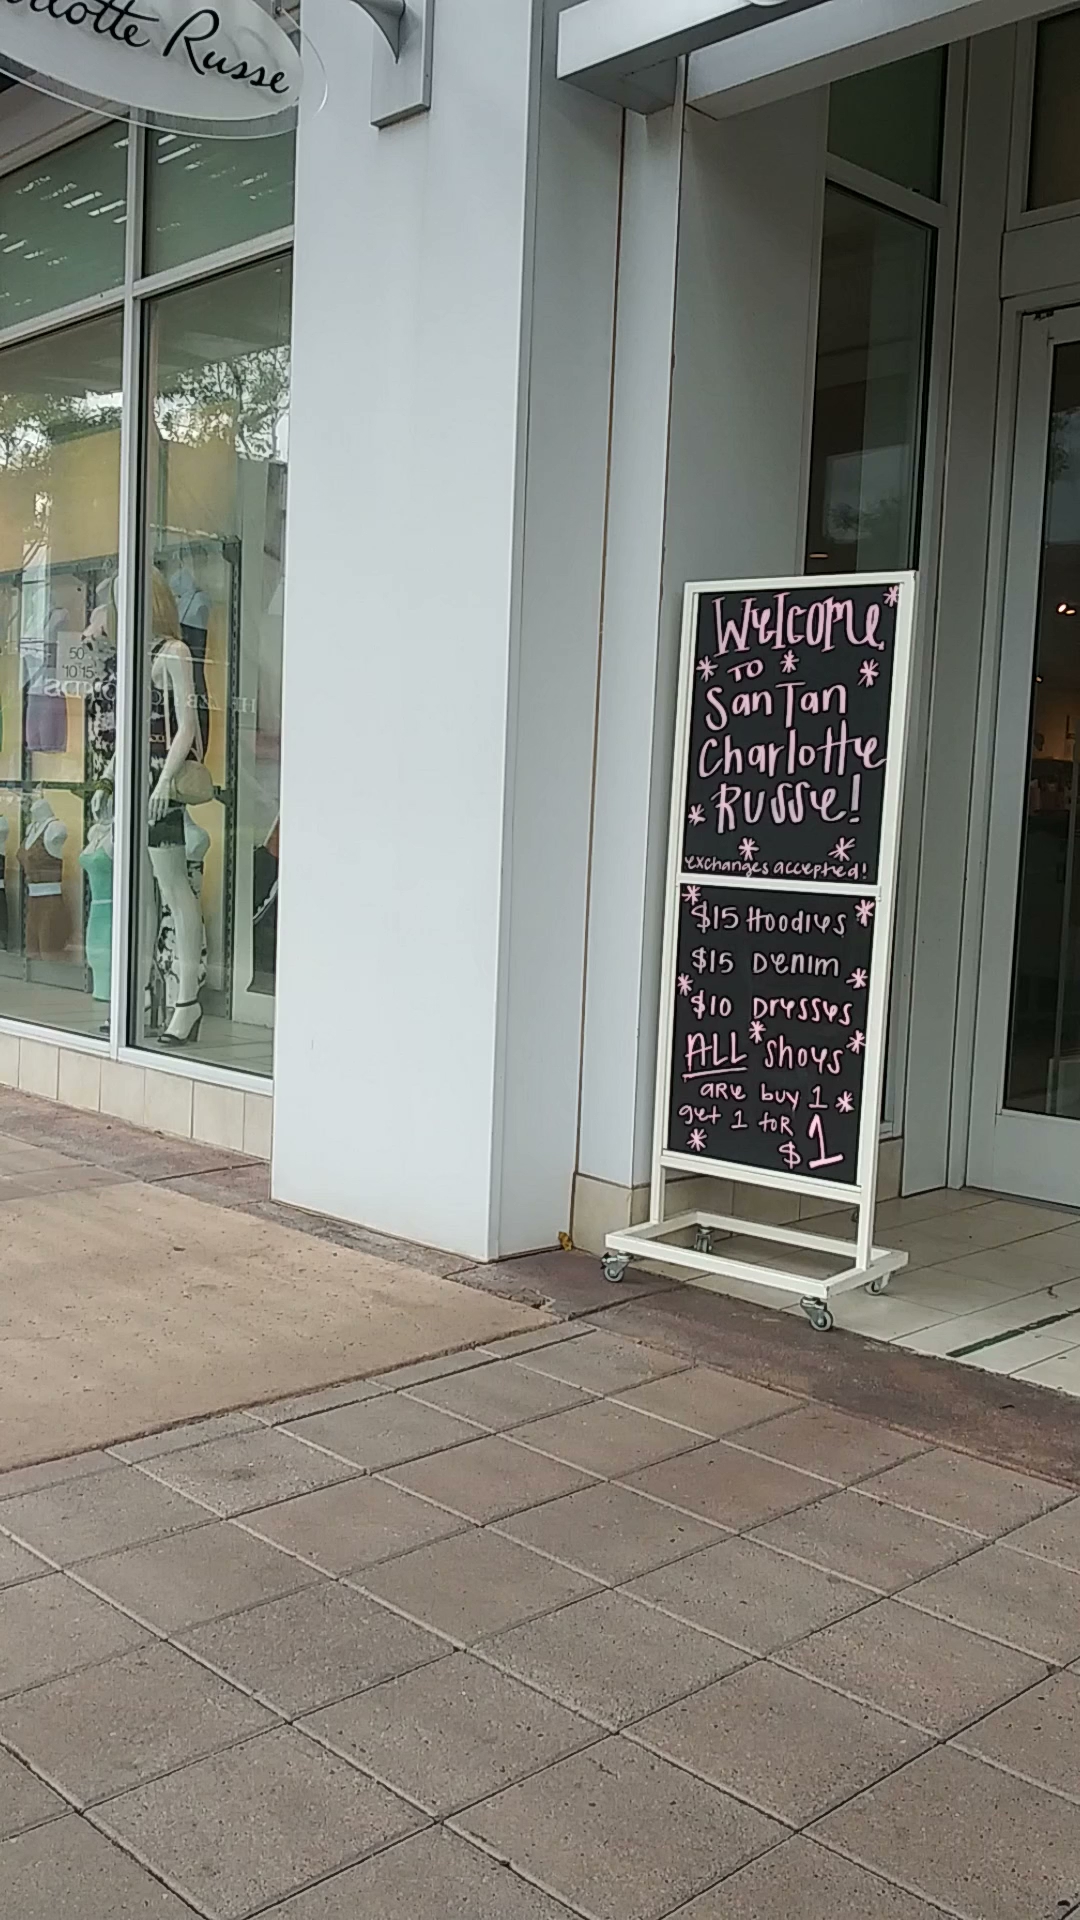 Charlotte Russe
Welcome
TO
San Tan
Charlotte
Russe!
exchanges accepted!
$15 Hoodies
$15 Denim
$10 Dresses
ALL shoes
are buy 1
get 1 for
$1
50